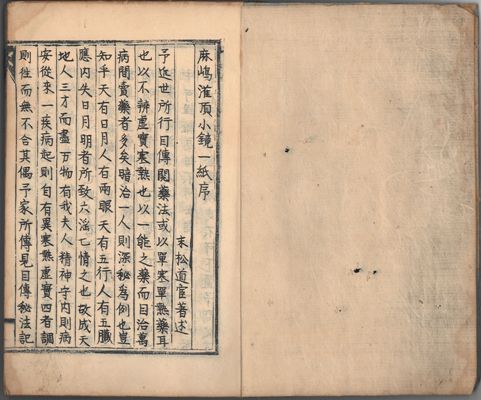 麻嶋灌頂小鏡一紙序
末松道宦著述
予近世所行目傳関藥法或以單寒單熱藥耳
也以不辨虚實寒熱也以一能之藥而目治萬
病間賣藥者多矣暗治一人則深秘為例也豈
知乎天有日月人有兩眼天有五行人有五臟
應内失日月明者所致六滛七情之也故成天
地人三才而盡万物有我夫人精神守内則病
安從來一疾病起則自有異寒熱虚實四者調
則徃而無不合其偶予家所傳見目傳秘法記